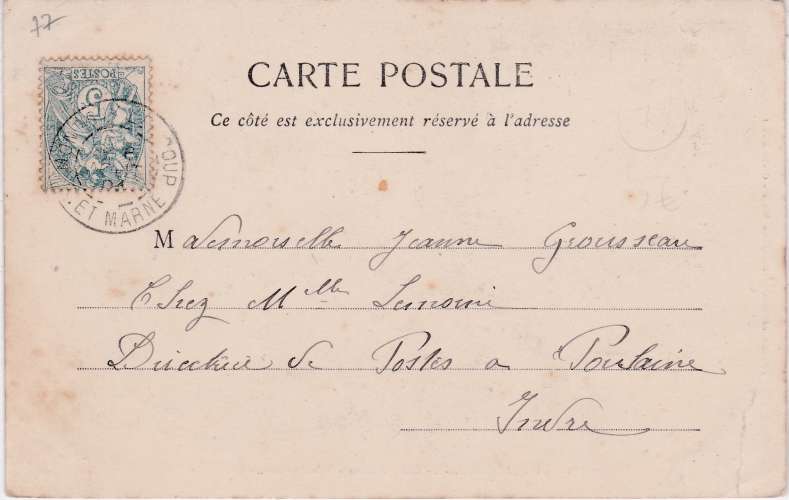 77
CARTE POSTALE
Ce côté est exclusivement réservé à l'adresse
POSTES
5
COUP
ET MARNE
Mademoiselle Jeanne Grousseau
Chez Mlle Lemoine
Directrice de Postes à Poulaine
Indre